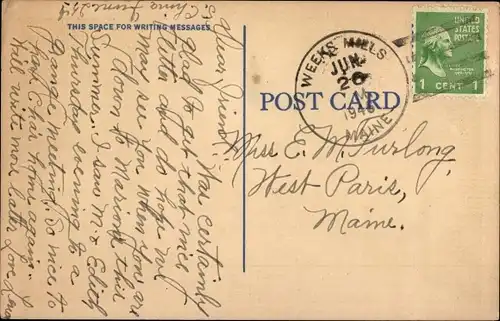 THIS SPACE FOR WRITING MESSAGES
S. China
June
Dear Friend:
Was certainly
glad to get that nice
letter and do hope we
may see you when you are
down to Marion this
Summer. I saw M. & Edith
Thursday evening to a
Grange meeting. So nice to
have home again. I
will write more later. Love
POST CARD
WEEKS MILLS
JUN
20
MAINE
UNITED STATES
POSTAGE
1 CENT 1
Miss E. M. Furlong,
West Paris,
Maine.